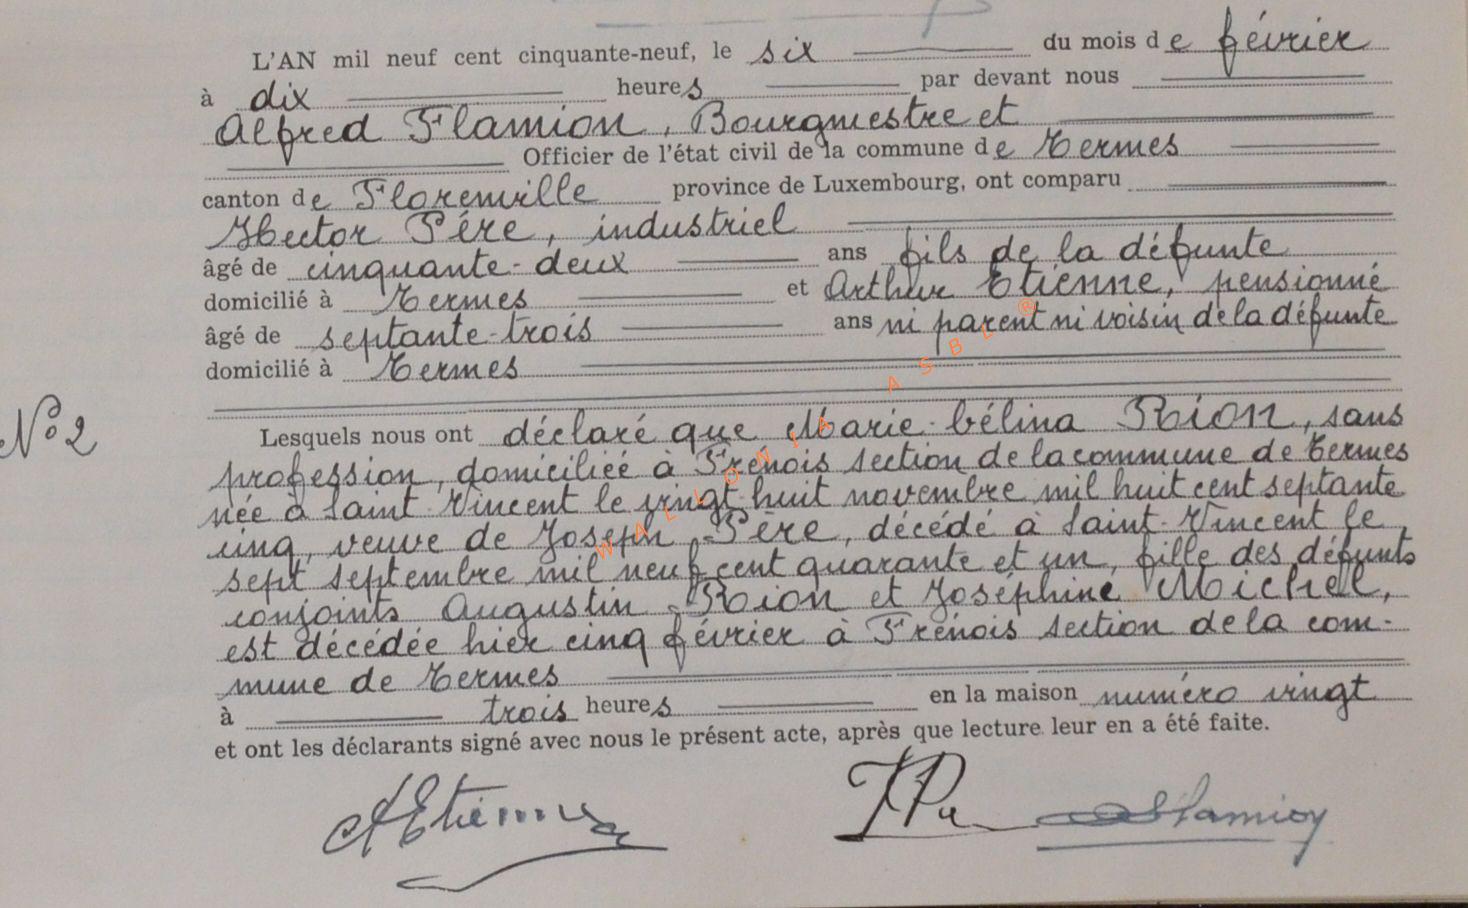 L'AN mil neuf cent cinquante-neuf, le six du mois de février
à dix heures par devant nous
Alfred Flamion, Bourgmestre et
Officier de l'état civil de la commune de Termes
canton de Florenville province de Luxembourg, ont comparu
Hector Père, industriel
âgé de cinquante-deux ans fils de la défunte
domicilié à Termes et Arthur Etienne, pensionné
âgé de septante-trois ans ni parent ni voisin de la défunte
domicilié à Termes
N° 2
Lesquels nous ont déclaré que Marie-Célina Rion, sans
profession, domiciliée à Frénois section de la commune de Termes
née à Saint-Vincent le vingt-huit novembre mil huit cent septante
cinq, veuve de Joseph Père, décédé à Saint-Vincent le
sept septembre mil neuf cent quarante et un, fille des défunts
conjoints Augustin Rion et Joséphine Michel,
est décédée hier cinq février à Frénois section de la com-
mune de Termes
à trois heures en la maison numéro vingt
et ont les déclarants signé avec nous le présent acte, après que lecture leur en a été faite.
AEtienne HPère AFlamion
WALLONIA ASBL ®